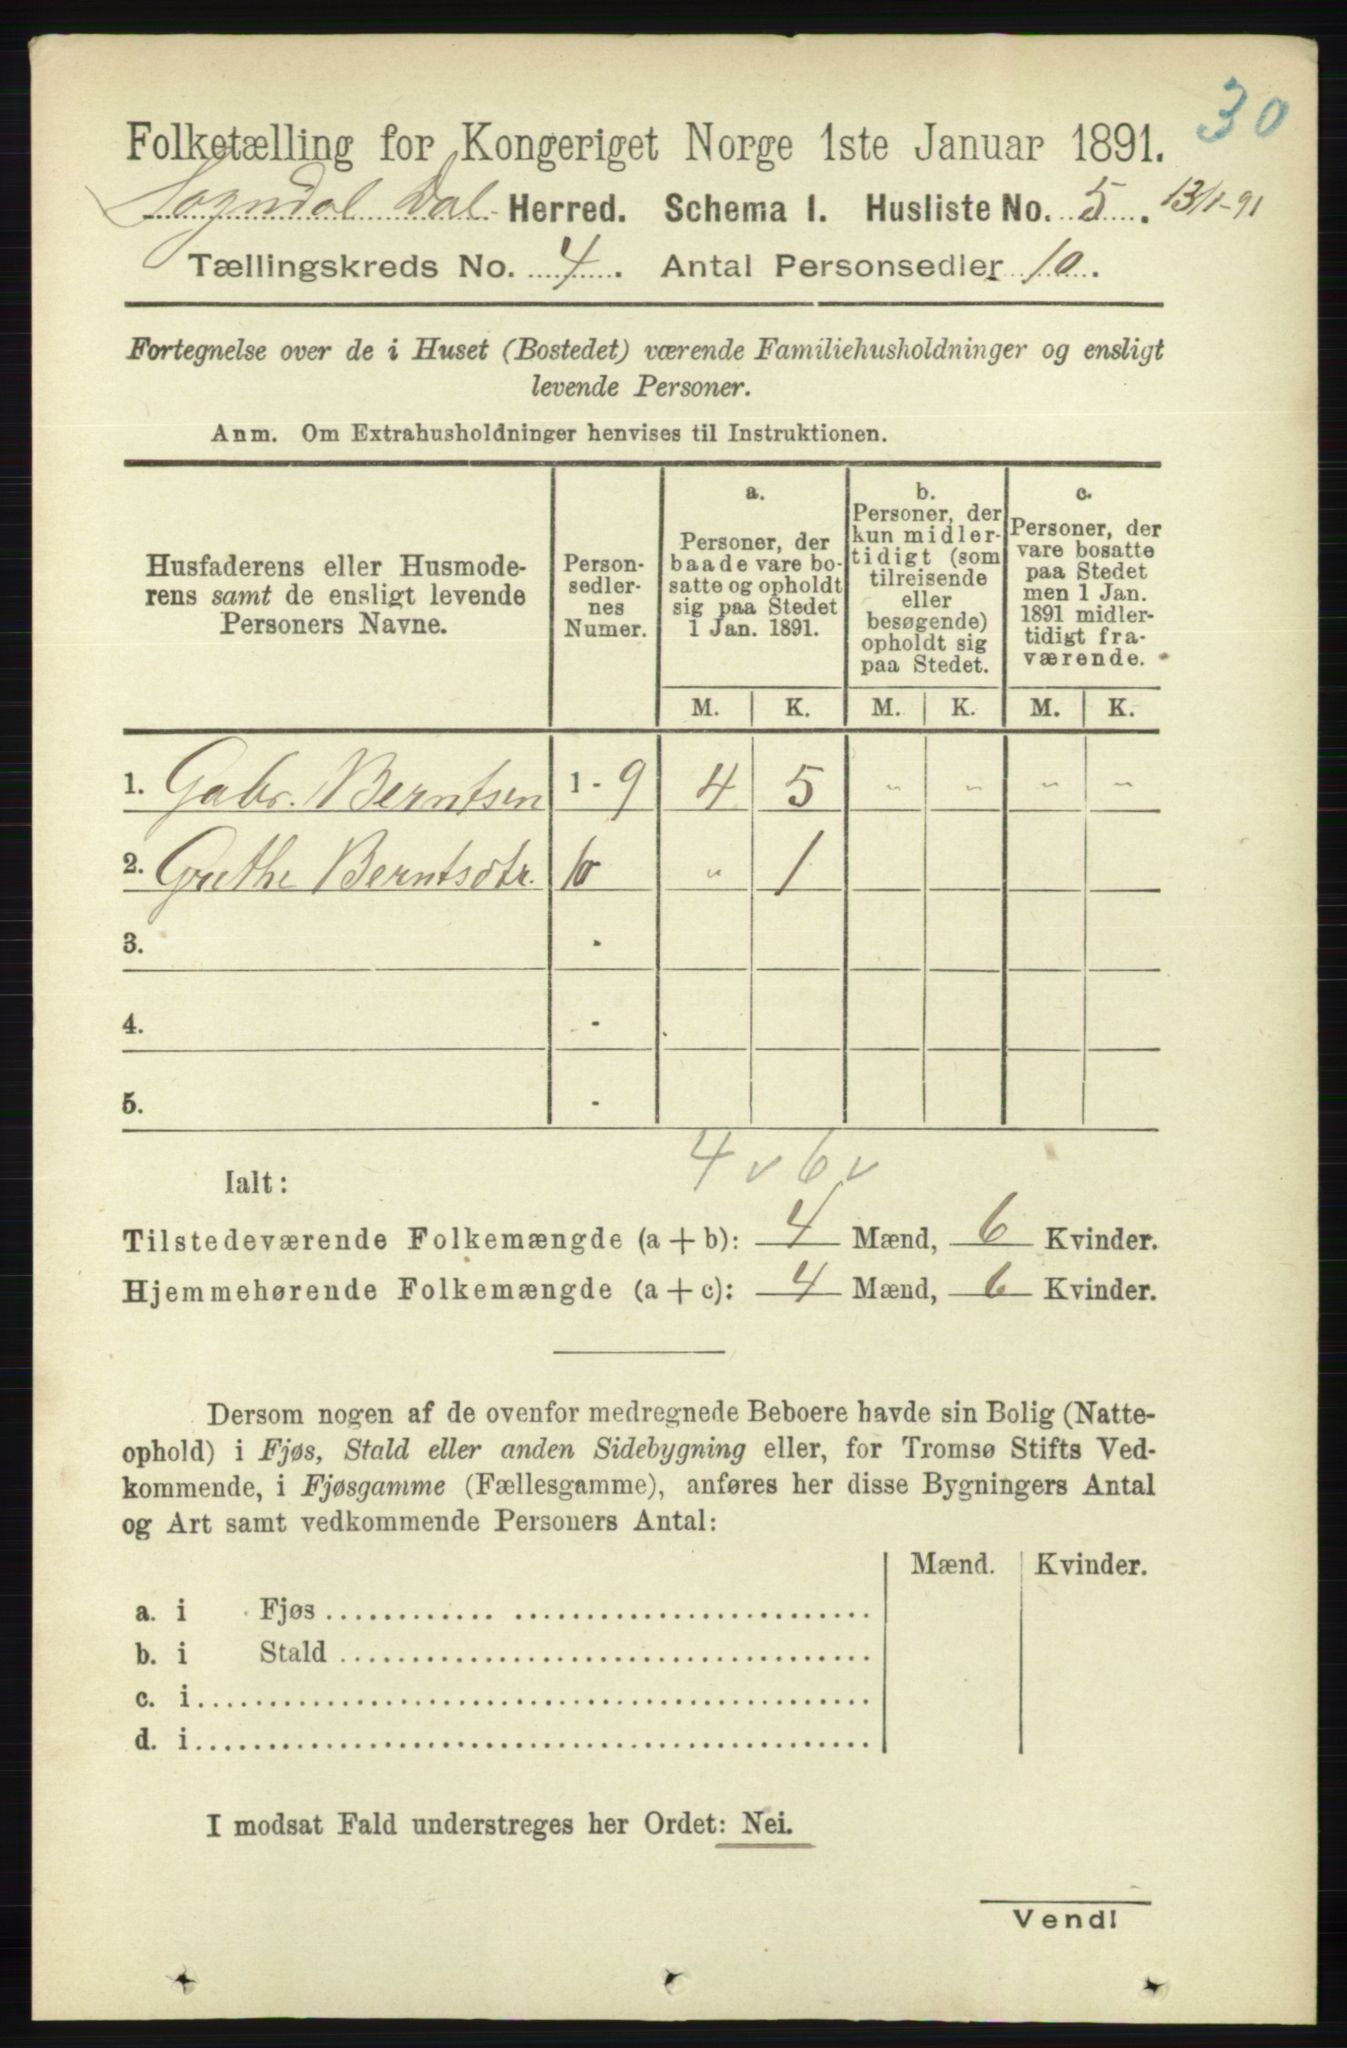 30
Folketælling for Kongeriget Norge 1ste Januar 1891.
Sogndal Dal Herred. Schema I. Husliste No. 5. 13/1-91
Tællingskreds No. 4. Antal Personsedler 10.
Fortegnelse over de i Huset (Bostedet) værende Familiehusholdninger og ensligt
levende Personer.
Anm. Om Extrahusholdninger henvises til Instruktionen.
Husfaderens eller Husmode-
rens samt de ensligt levende
Personers Navne.
Person-
sedler-
nes
Numer.
a.
Personer, der
baade vare bo-
satte og opholdt
sig paa Stedet
1 Jan. 1891.
b.
Personer, der
kun midler-
tidigt (som
tilreisende
eller
besøgende)
opholdt sig
paa Stedet.
c.
Personer, der
vare bosatte
paa Stedet
men 1 Jan.
1891 midler-
tidigt fra-
værende.
M. K. M. K. M. K.
1. Gabr. Berntsen 1 - 9 4 5 " " " "
2. Grethe Berntsdtr. 10 " 1
3. -
4. -
5. -
4 v 6 v
Ialt:
Tilstedeværende Folkemængde (a + b): 4 Mænd, 6 Kvinder.
Hjemmehørende Folkemængde (a + c): 4 Mænd, 6 Kvinder.
Dersom nogen af de ovenfor medregnede Beboere havde sin Bolig (Natte-
ophold) i Fjøs, Stald eller anden Sidebygning eller, for Tromsø Stifts Ved-
kommende, i Fjøsgamme (Fællesgamme), anføres her disse Bygningers Antal
og Art samt vedkommende Personers Antal:
Mænd. Kvinder.
a. i Fjøs
b. i Stald
c. i
d. i
I modsat Fald understreges her Ordet: Nei.
Vend!